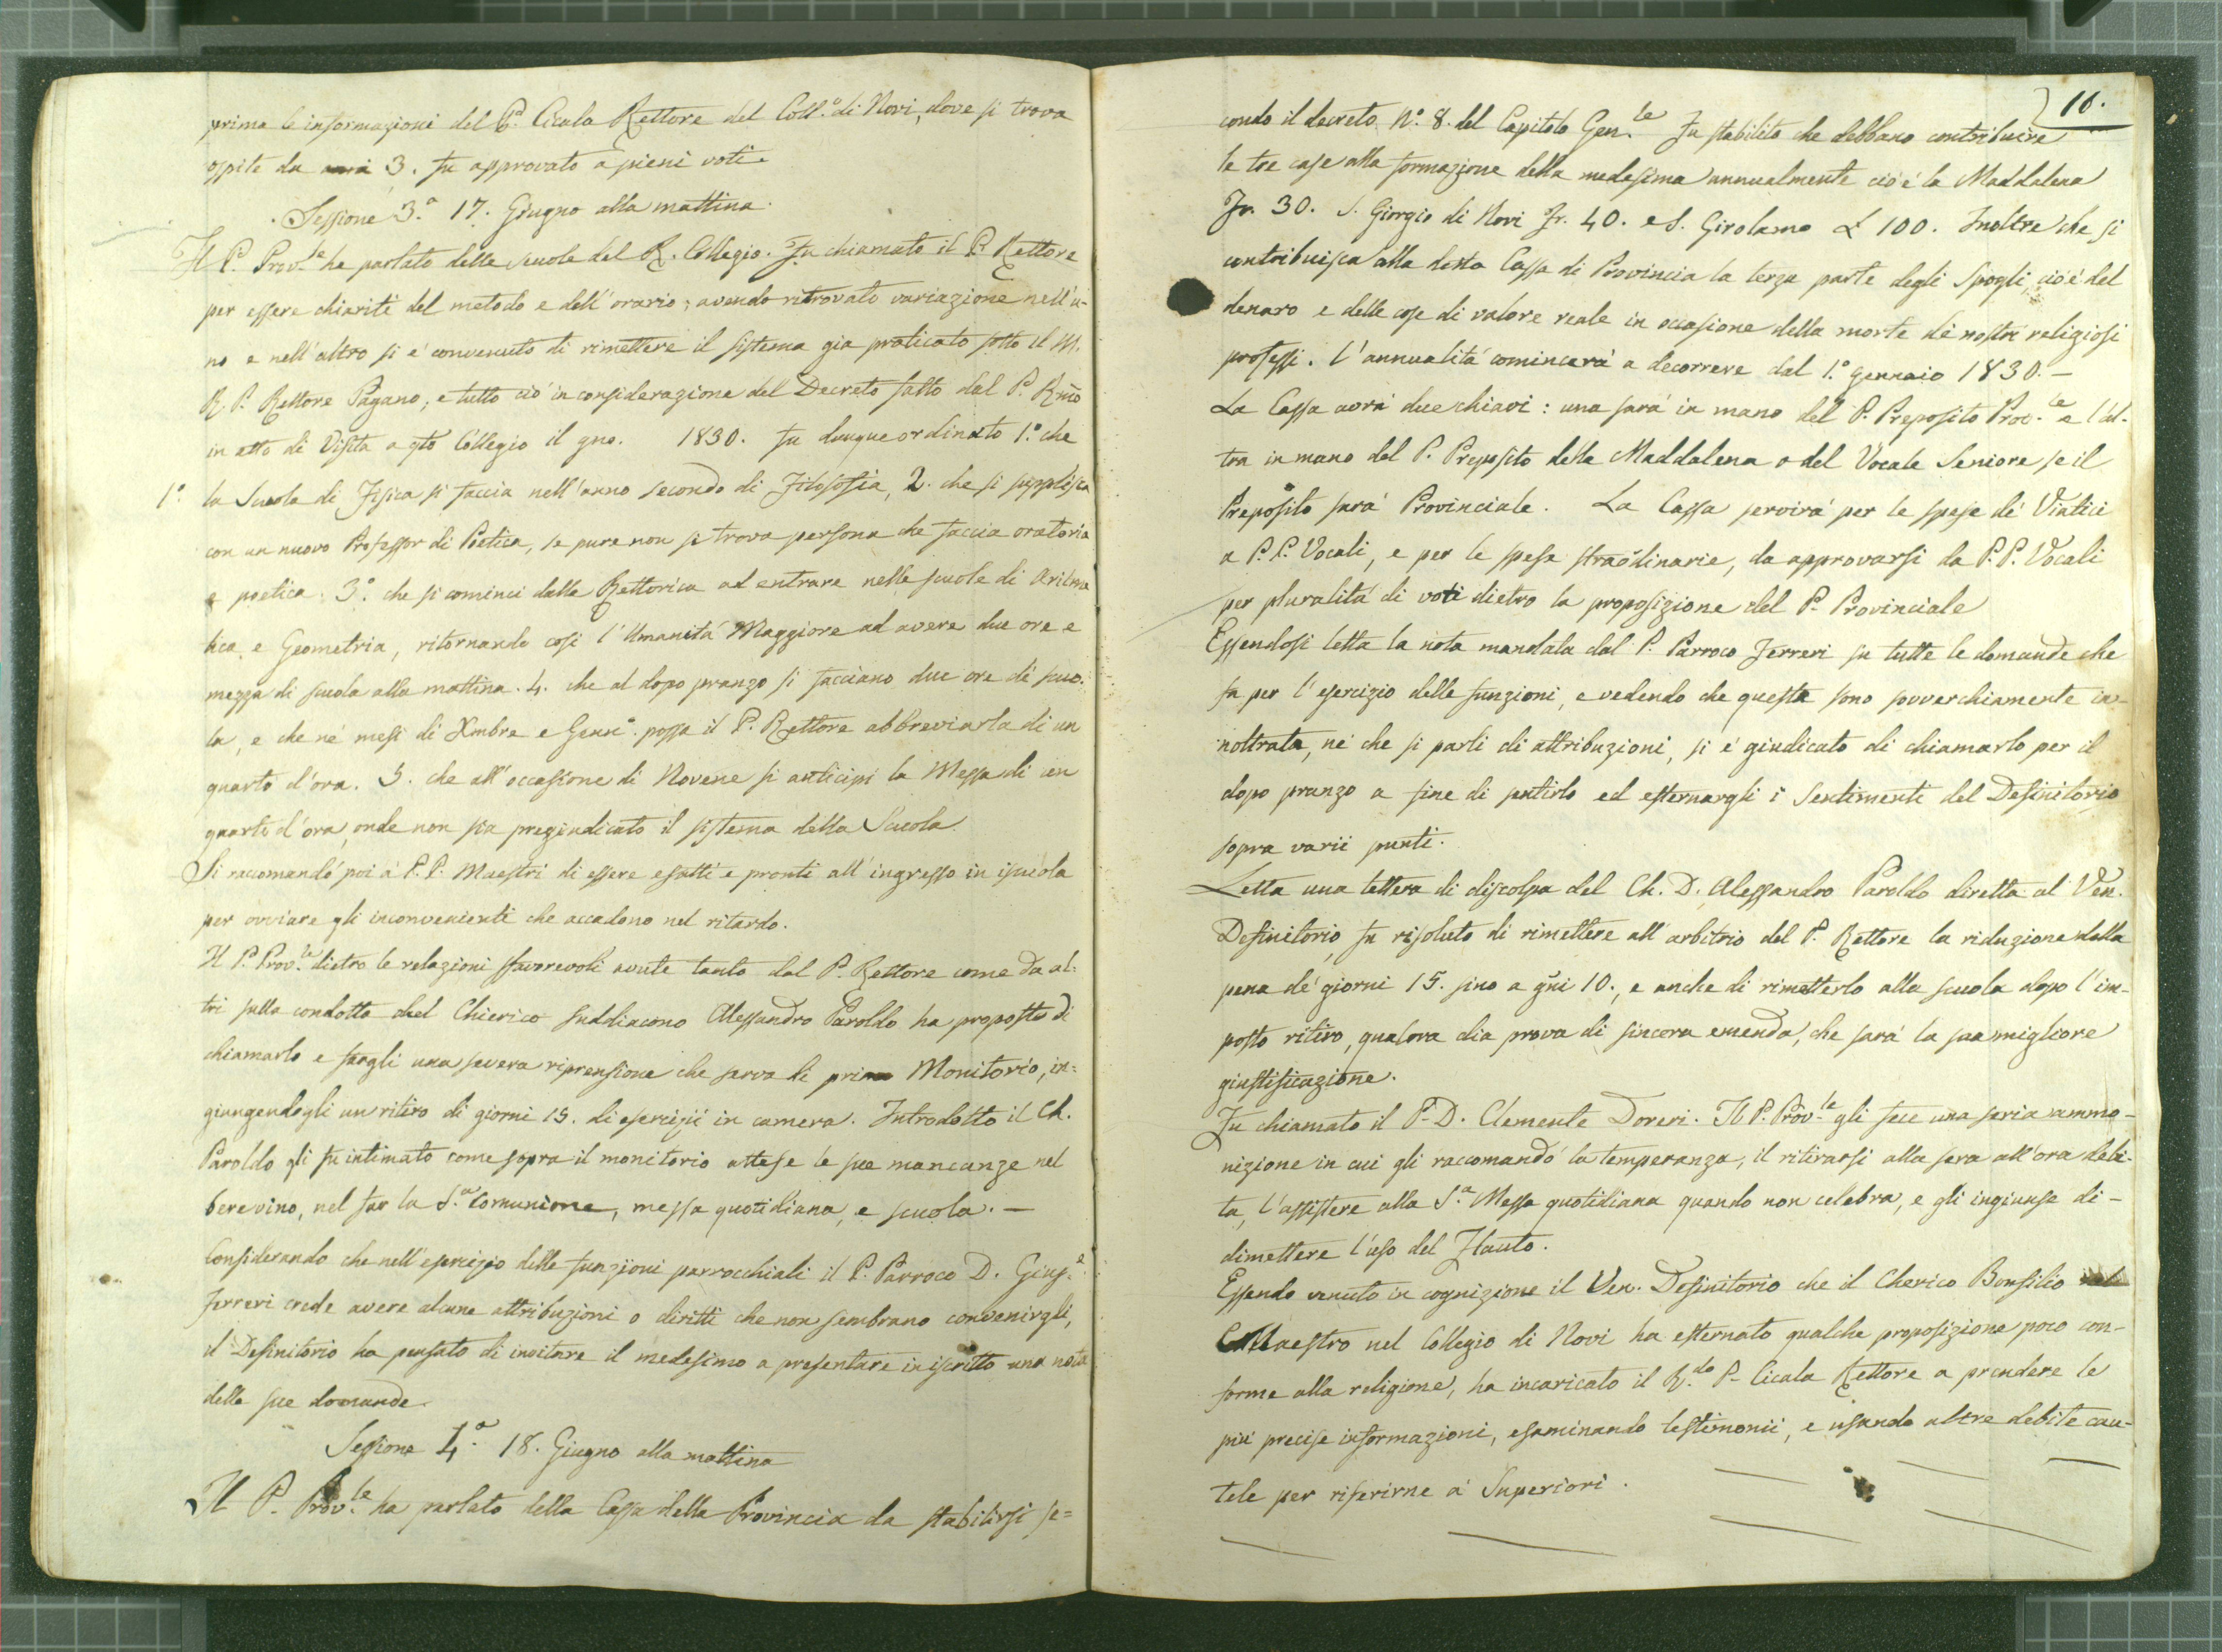 prima le informazioni del P. Cicala Rettore del Coll.o di Novi, dove si trova
ospite da anni 3. fu approvato a pieni voti.
Sessione 3.a 17. Giugno alla mattina.
Il P. Prov.le ha parlato delle scuole del R. Collegio. Fu chiamato il P. Rettore
per essere chiariti del metodo e dell'orario; avendo ritrovato variazione nell'u-
no e nell'altro si è convenuto di rimettere il sistema già praticato sotto il M.
R. P. Rettore Pagano, e tutto ciò in considerazione del Decreto fatto dal P. Rmo
in atto di Visita a qto Collegio il gno. 1830. Fu dunque ordinato 1.o che
1.o la Scuola di Fisica si faccia nell'anno secondo di Filosofia, 2. che si supplisca
con un nuovo Professor di Poetica, se pure non si trova persona che faccia oratoria
e poetica. 3.o che si cominci dalla Rettorica ad entrare nelle scuole di Aritma
tica e Geometria, ritornando così l'Umanità Maggiore ad avere due ore e
mezza di scuola alla mattina. 4. che al dopo pranzo si facciano due ore di scuo-
la, e che nè mesi di Xmbre e Genn.o possa il P. Rettore abbreviarla di un
quarto d'ora. 5. che all'occasione di Novene si anticipi la Messa di un
quarto d'ora, onde non sia pregiudicato il sistema della Scuola.
Si raccomandò poi à P.P. Maestri di essere esatti e pronti all'ingresso in iscuola
per ovviare gli inconvenienti che accadono nel ritardo.
Il P. Prov.le dietro le relazioni sfavorevoli avute tanto dal P. Rettore come da al-
tri sulla condotta del Chierico suddiacono Alessandro Paroldo ha proposto di
chiamarlo e fargli una severa riprensione che serva di primo Monitorio, in=
giungendogli un ritiro di giorni 15. di esercizii in camera. Introdotto il Ch.
Paroldo gli fu intimato come sopra il monitorio attese le sue mancanze nel
bere vino, nel far la S.a Comunione, messa quotidiana, e scuola. —
Considerando che nell'esercizio delle funzioni parrocchiali il P. Parroco D. Gius.e
Ferreri crede avere alcune attribuzioni o diritti che non sembrano convenirgli,
il Definitorio ha pensato di invitare il medesimo a presentare in iscritto una nota
delle sue domande.
Sessione 4.a 18. Giugno alla mattina
Il P. Prov.le ha parlato della Cassa della Provincia da stabilirsi se=
16.
condo il decreto N.o 8. del Capitolo Gen.le Fu stabilito che debbano contribuire
le tre case alla formazione della medesima annualmente cioè la Maddalena
Fr. 30. S. Giorgio di Novi Fr. 40. e S. Girolamo £ 100. Inoltre che si
contribuisca alla detta Cassa di Provincia la terza parte degli Spogli, cioè del
denaro e delle cose di valore reale in occasione della morte dè nostri religiosi
professi. L'annualità comincerà a decorrere dal 1.o Gennaio 1830. —
La Cassa avrà due chiavi: una sarà in mano del P. Preposito Prov.le e l'al-
tra in mano del P. Preposito della Maddalena o del Vocale Seniore se il
Preposito sarà Provinciale. La Cassa servirà per le spese dè Viatici
a P.P. Vocali, e per le spese straodinarie, da approvarsi da P.P. Vocali
per pluralità di voti dietro la proposizione del P. Provinciale
Essendosi letta la nota mandata dal P. Parroco Ferreri su tutte le domande che
fa per l'esercizio delle funzioni, e vedendo che queste sono sovverchiamente in-
noltrate, nè che si parli di attribuzioni, si è giudicato di chiamarlo per il
dopo pranzo a fine di sentirlo ed esternargli i Sentimenti del Definitorio
sopra varii punti.
Letta una lettera di discolpa del Ch. D. Alessandro Paroldo diretta al Ven.
Definitorio, fu risoluto di rimettere all'arbitrio del P. Rettore la riduzione della
pena dè giorni 15. sino a gni 10., e anche di rimetterlo alla scuola dopo l'im-
posto ritiro, qualora dia prova di sincera emenda, che sarà la sua migliore
giustificazione.
Fu chiamato il P. D. Clemente Doreri. Il P. Prov.le gli fece una seria ammo-
nizione in cui gli raccomandò la temperanza, il ritirarsi alla sera all'ora debi-
ta, l'assistere alla S.a Messa quotidiana quando non celebra, e gli ingiunse di-
dimettere l'uso del Flauto.
Essendo venuto in cognizione il Ven. Definitorio che il Cherico Bonfilio
Maestro nel Collegio di Novi ha esternato qualche proposizione poco con-
forme alla religione, ha incaricato il R.do P. Cicala Rettore a prendere le
più precise informazioni, esaminando testimonii, e usando altre debite cau-
tele per riferirne à Superiori.